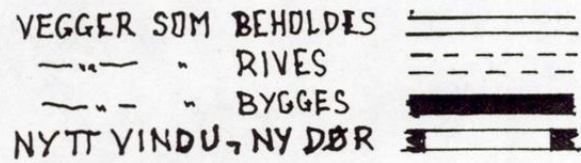 VEGGER SOM BEHOLDES
—"— " RIVES
—"— " BYGGES
NYTT VINDU, NY DØR